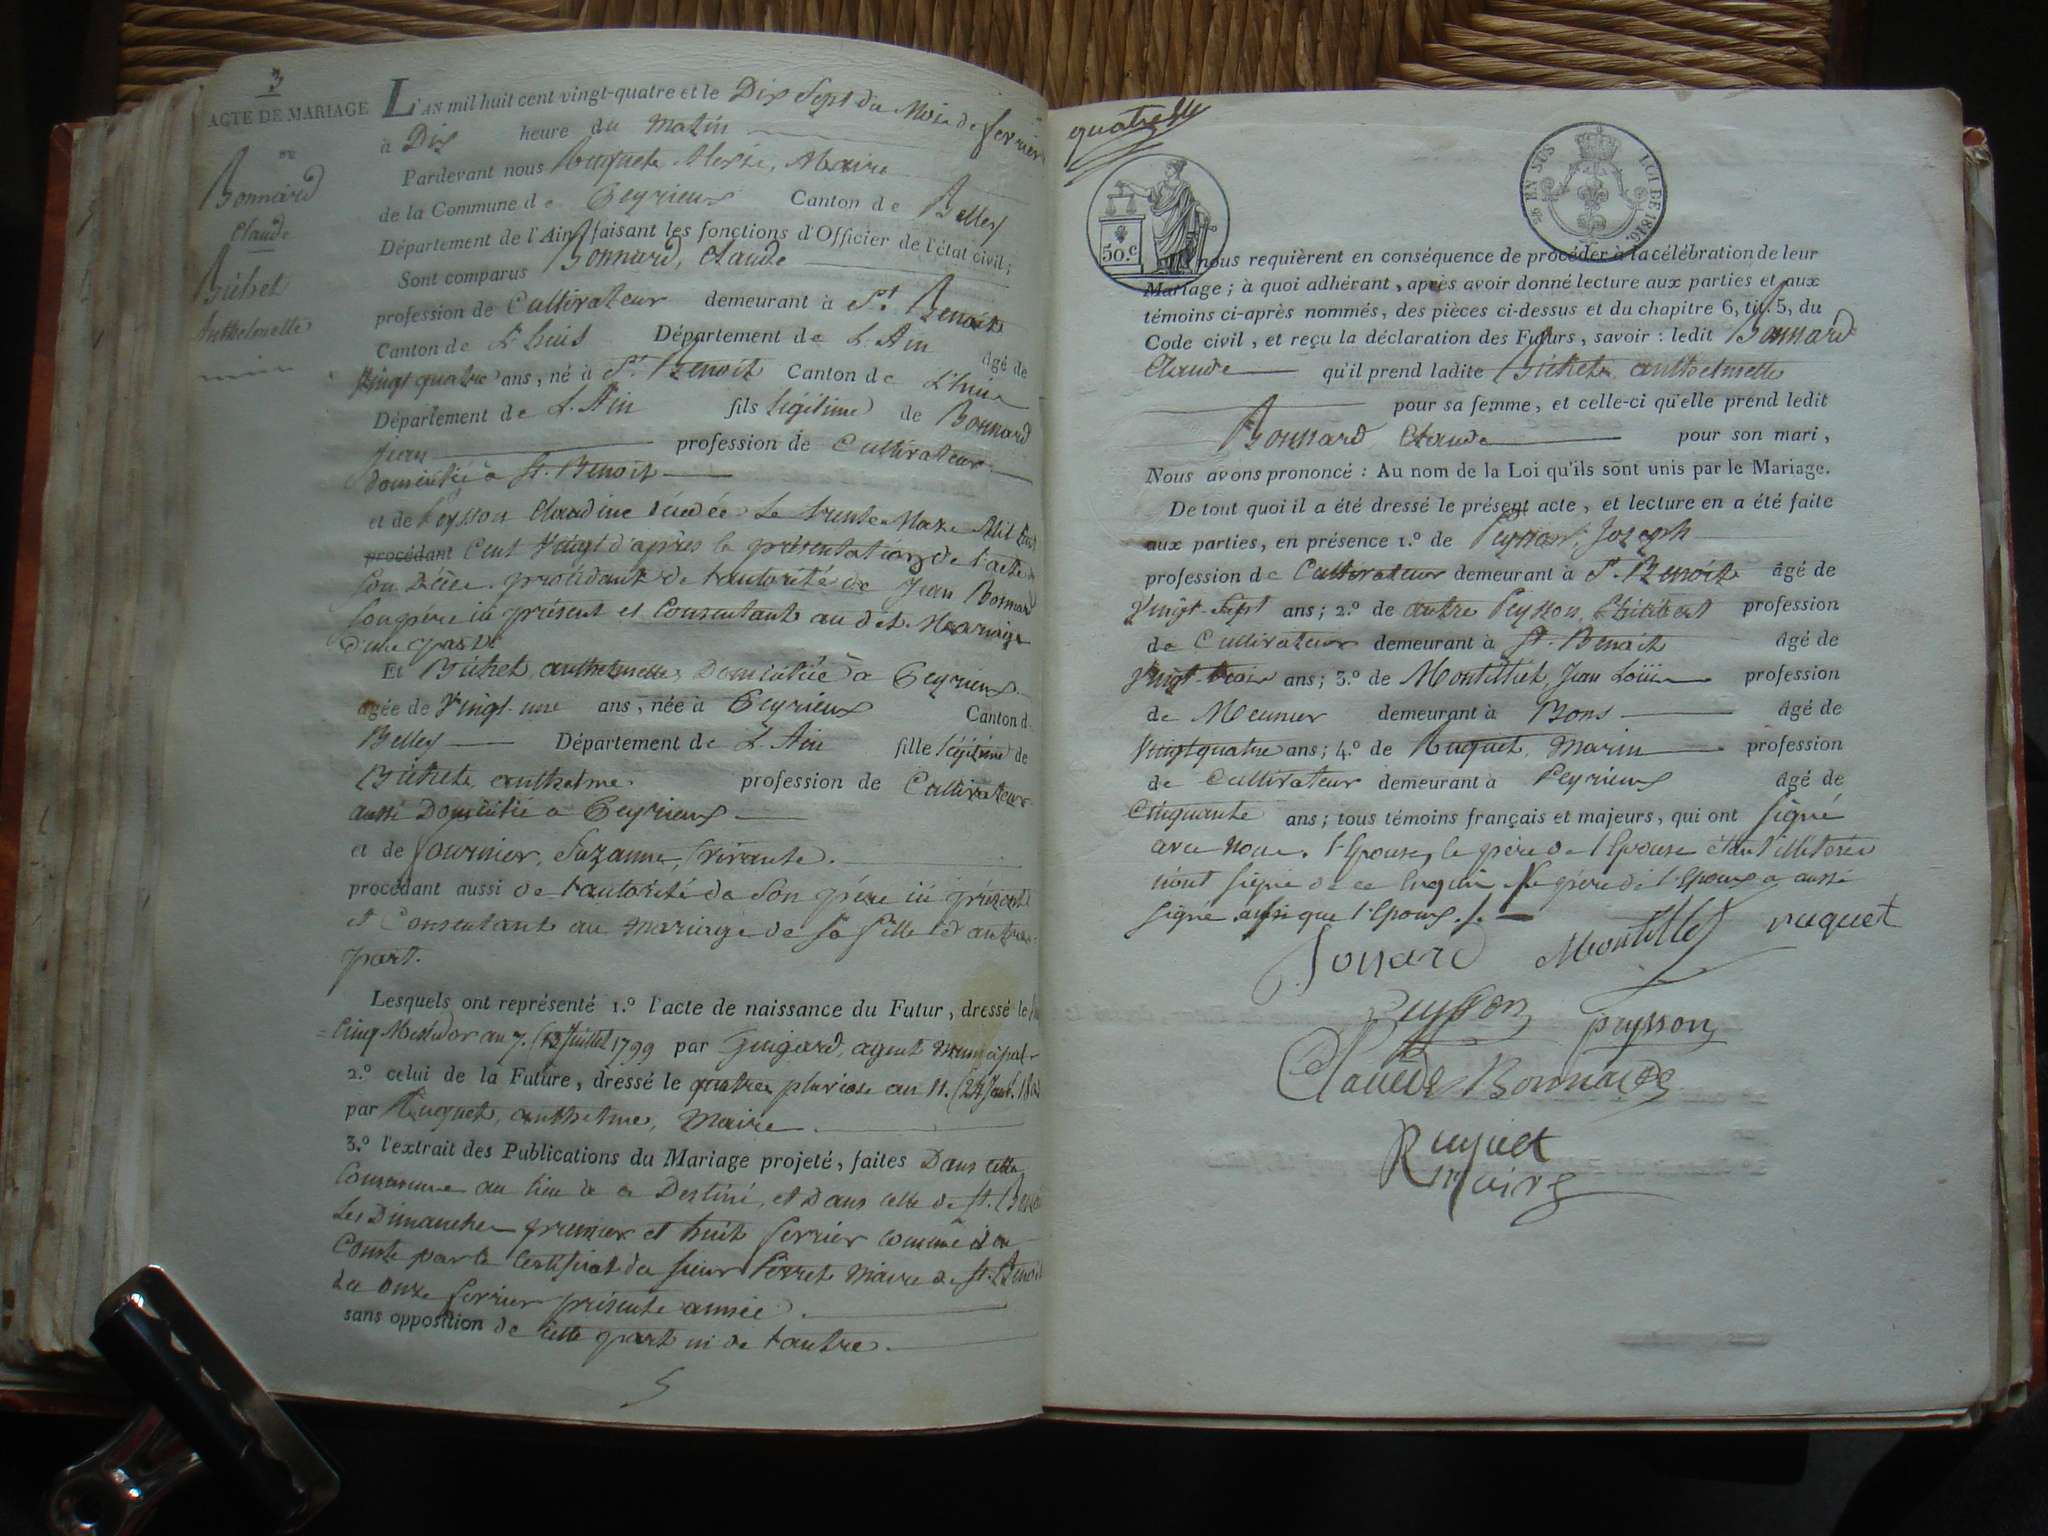 3
ACTE DE MARIAGE
DE
Bonnard
Claude
Bichet
Anthelmette
L'AN mil huit cent vingt-quatre et le Dix Sept du Mois de fevrier
à Dix heure du Matin
Pardevant nous Ruquet Maire
de la Commune de Peyrieux Canton de Belley
Département de l'Ain faisant les fonctions d'Officier de l'état civil;
Sont comparus Bonnard, Claude
profession de Cultivateur demeurant à St. Benoit
Canton de L'huis Département de L'Ain âgé de
Vingt quatre ans, né à St. Benoit Canton de L'huis
Département de L'Ain fils légitime de Bonnard
Jean profession de Cultivateur
domicilié à St. Benoit
et de Peysson Claudine décédée le trente Mars Mil huit
procédant Cent Vingt d'après la présentation de l'acte de
son Décès. procédant de l'autorité de Jean Bonnard
son père ici présent et Consentant au dit Mariage
d'une part
Et Bichet anthelmette, Domiciliée à Peyrieux
âgée de Vingt-une ans, née à Peyrieux Canton de
Belley Département de L'Ain fille légitime de
Bichet anthelme profession de Cultivateur
aussi Domicilié à Peyrieux
et de fournier, Suzanne, vivante.
procédant aussi de l'autorité de Son père ici présent
et Consentant au mariage de sa fille d'autre
part.
Lesquels ont représenté 1.º l'acte de naissance du Futur, dressé le
Cinq Messidor an 7. (13 Juillet 1799 par Guigard, agent Municipal
2.º celui de la Future, dressé le quatre pluviose an 11. (24 Janv. 1803
par Ruquet, anthelme, Maire
3.º l'extrait des Publications du Mariage projeté, faites Dans cette
Commune au lieu à ce Destiné, et Dans celle de St. Benoit
Les Dimanches premier et huit fevrier comme il en
Conste par le Certificat du sieur Perret Maire de St. Benoit
du onze fevrier présente année.
sans opposition de cette part ni de l'autre.
quatre
50.C
EN SUS
LOI DE 1816.
nous requièrent en conséquence de procéder à la célébration de leur
Mariage; à quoi adhérant, après avoir donné lecture aux parties et aux
témoins ci-après nommés, des pièces ci-dessus et du chapitre 6, tit. 5, du
Code civil, et reçu la déclaration des Futurs, savoir: ledit Bonnard
Claude qu'il prend ladite Bichet anthelmette
pour sa femme, et celle-ci qu'elle prend ledit
Bonnard Claude pour son mari,
Nous avons prononcé: Au nom de la Loi qu'ils sont unis par le Mariage.
De tout quoi il a été dressé le présent acte, et lecture en a été faite
aux parties, en présence 1.º de Peysson, Joseph
profession de Cultivateur demeurant à St. Benoit âgé de
Vingt-Sept ans; 2.º de autre Peysson, profession
de Cultivateur demeurant à St. Benoit âgé de
Vingt-trois ans; 3.º de Montillet, Jean Louis profession
de Meunier demeurant à Bons âgé de
Vingt quatre ans; 4.º de Ruquet, Marin profession
de Cultivateur demeurant à Peyrieux âgé de
Cinquante ans; tous témoins français et majeurs, qui ont signé
avec nous. l'Epouse, le père de l'Epouse étant illitérés
n'ont signé de ce Enquis. Le père de l'Epoux a aussi
signé ainsi que l'Epoux.
Bonard Montillet ruquet
Peysson peysson
Claude Bonnard
Ruquet
maire